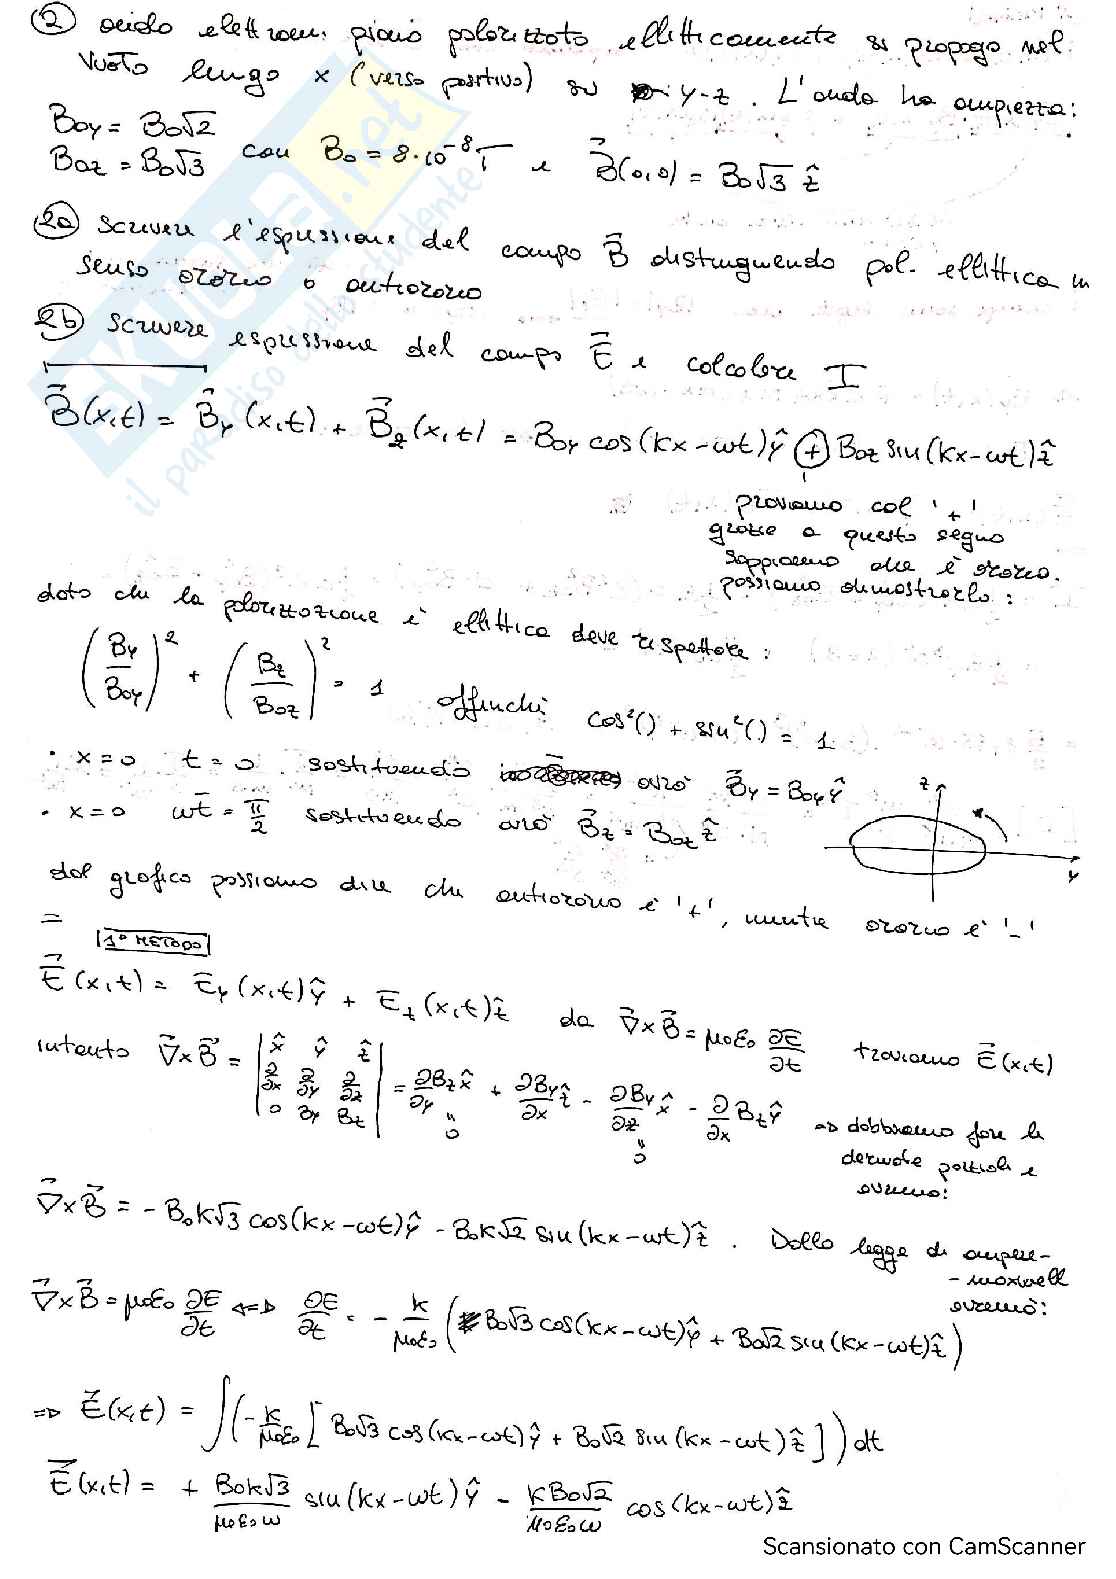 ② onda elettrom. piano polarizzato ellitticamente si propaga nel
vuoto lungo x (verso positivo) su y-z. L'onda ha ampiezza:
Boy = Bo√2
Boz = Bo√3 con Bo = 8·10⁻⁸ T e B⃗(0,0) = Bo√3 ẑ
2a scrivere l'espressione del campo B⃗ distinguendo pol. ellittica in
senso orario o antiorario
2b scrivere espressione del campo E⃗ e calcolare I
B⃗(x,t) = B⃗y(x,t) + B⃗z(x,t) = Boy cos(kx-ωt)ŷ + Boz sin(kx-ωt)ẑ
proviamo col '+'
grazie a questo segno
sappiamo che è orario.
possiamo dimostrarlo:
dato che la polarizzazione è ellittica deve rispettare:
(By/Boy)² + (Bz/Boz)² = 1 affinché cos²() + sin²() = 1
• x=0 t=0 sostituendo avrò B⃗y = Boy ŷ
• x=0 ωt = π/2 sostituendo avrò B⃗z = Boz ẑ
z
y
dal grafico possiamo dire che antiorario è '+', mentre orario è '-'
=
1° METODO
E⃗(x,t) = Ey(x,t)ŷ + Ez(x,t)ẑ da ∇⃗×B⃗ = μoεo ∂E/∂t troviamo E⃗(x,t)
intanto ∇⃗×B⃗ = | x̂ ŷ ẑ |
| ∂/∂x ∂/∂y ∂/∂z | = ∂Bz/∂y x̂ + ∂By/∂x ẑ - ∂By/∂z x̂ - ∂/∂x Bz ŷ ⇒ dobbiamo fare le
| 0 By Bz | " 0 " 0
derivate parziali e
avremo:
∇⃗×B⃗ = -Bo k√3 cos(kx-ωt)ŷ - Bo k√2 sin(kx-ωt)ẑ. Dalla legge di ampere-
-maxwell
avremo:
∇⃗×B⃗ = μoεo ∂E/∂t ⇔ ∂E/∂t = - k/μoεo (Bo√3 cos(kx-ωt)ŷ + Bo√2 sin(kx-ωt)ẑ)
⇒ E⃗(x,t) = ∫(-k/μoεo [Bo√3 cos(kx-ωt)ŷ + Bo√2 sin(kx-ωt)ẑ])dt
E⃗(x,t) = + Bok√3/μoεoω sin(kx-ωt)ŷ - kBo√2/μoεoω cos(kx-ωt)ẑ
Scansionato con CamScanner
skuola.net
il paradiso dello studente